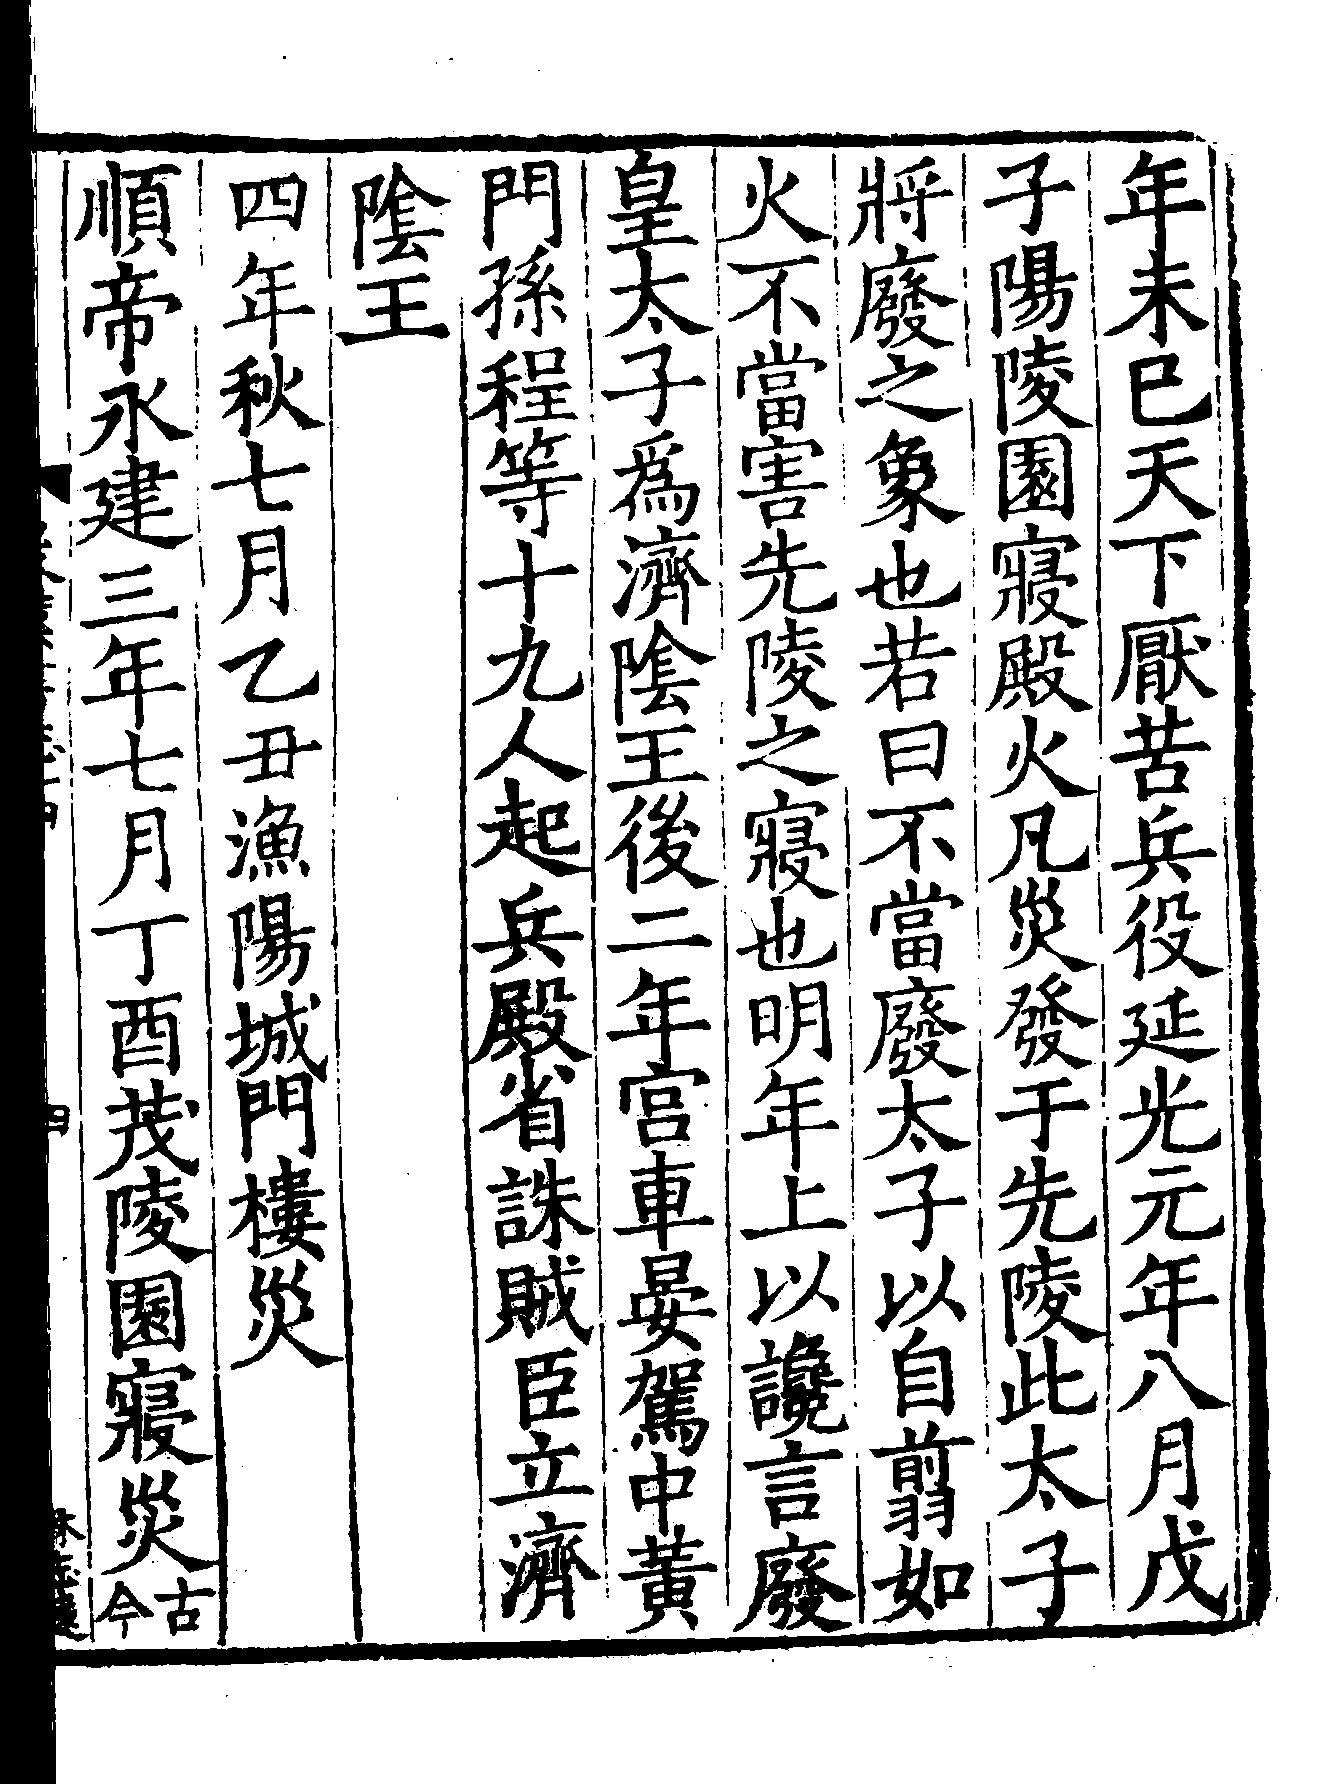 年未已天下厭苦兵役延光元年八月戊
子陽陵園寢殿火凡災發于先陵此太子
將廢之象也若曰不當廢太子以自翦如
火不當害先陵之寢也明年上以讒言廢
皇太子爲濟隂王後二年宫車晏駕中黃
門孫程等十九人起兵殿省誅賊臣立濟
隂王
四年秋七月乙丑漁陽城門樓災
順帝永建三年七月丁酉茂陵園寢災古
今